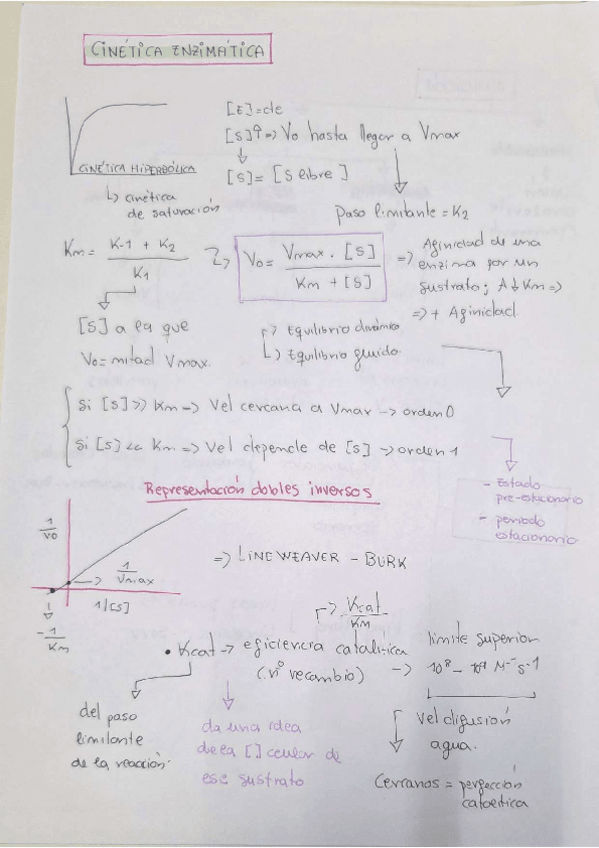 CINÉTICA ENZIMÁTICA
[E]=cte
[S]↑=> Vo hasta llegar a Vmax
[S]= [S libre]
CINÉTICA HIPERBÓLICA
↳ cinética
de saturación
Paso limitante = K2
Km = (K-1 + K2) / K1
Vo = (Vmax . [S]) / (Km + [S])
=> Afinidad de una
enzima por un
sustrato; A ↓ Km =>
=> + Afinidad.
[S] a la que
Vo= mitad Vmax.
Equilibrio dinámico
Equilibrio fluido.
Si [S] >> Km -> Vel cercana a Vmax -> orden 0
Si [S] << Km -> Vel depende de [S] -> orden 1
- Estado
pre-estacionario
- periodo
estacionario
Representación dobles inversos
1/Vo
1/Vmax
1/[S]
-1/Km
=> LINEWEAVER - BURK
Kcat/KM
• Kcat -> eficiencia catalítica
(nº recambio)
límite superior
-> 10⁸ - 10⁹ M⁻¹ s-1
del paso
limitante
de la reacción.
da una idea
de la [] celular de
ese sustrato
vel difusión
agua.
Cercanos = perfección
catalítica